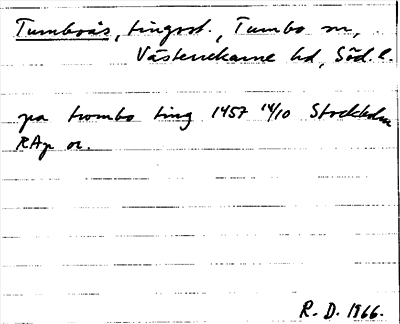 Tumboås, tingsst., Tumbo sn,
Västerrekarne hd, Söd. l.
pa trombo ting 1457 14/10 Stockholm
RAp or.
R. D. 1966.